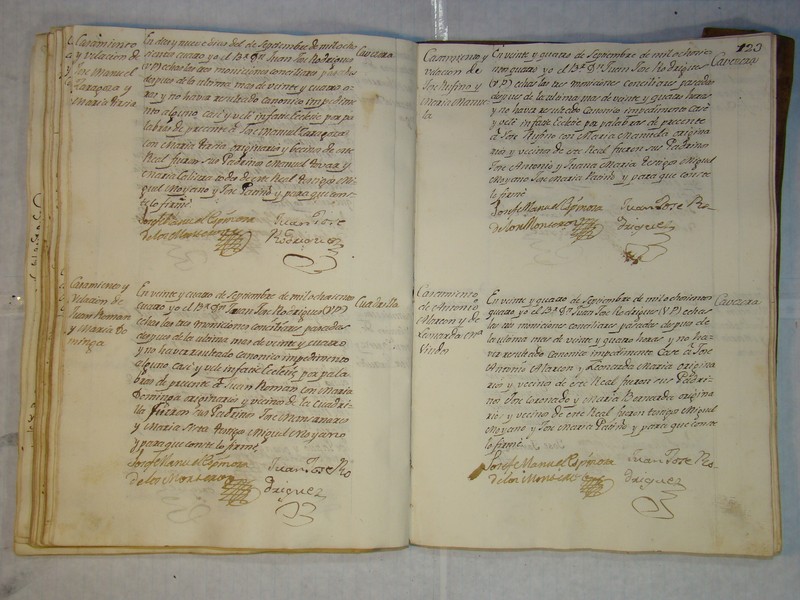 Casamiento
y velacion de
Jose Manuel
Zaragoza y
Maria
En diez y nueve dias del de Septiembre de mil ocho
cientos cuatro yo el Br. Dn. Juan Jose Rodriguez
(V.P.) echas las tres moniciones conciliares pasadas
despues de la ultima mas de veinte y cuatro o
ras y no haver resultado canonico impedimen
to alguno, casé y velé infatie Eclecie por pa
labras de precente á Jose Manuel Zaragoza
con Maria originario y becino de este
Real fueron sus Padrinos Manuel Tovar y
Maria todos de este Real testigos Mi
guel Moyano y Jose Patiño y para que cons
te lo firmé
Cavezera
Josefe Manuel Espinosa
de los Monteros
Juan Jose
Rodriguez
Casamiento y
Velacion de
Juan Roman
y Maria Do
minga
En veinte y cuatro de Septiembre de mil ochocientos
cuatro yo el Br. Dn. Juan Jose Rodriguez (V.P.)
echas las tres moniciones conciliares pasadas
despues de la ultima mas de veinte y cuatro
y no haver resultado canonico impedimento
alguno casé y velé infatie Eclecie por pala
bras de precente á Juan Roman con Maria
Dominga originario y vicinos de la Cuadri
lla fueron sus Padrinos Jose
y Maria testigos Miguel Moyano
y para que conste lo firmé,
Cuadrilla
Josefe Manuel Espinosa
de los Monteros
Juan Jose Ro
driguez
123
Casamiento y
velacion de
Jose Rufino y
Maria Manue
la
En veinte y quatro de Septiembre de mil ochocien
tos quatro yo el Br. Dn. Juan Jose Rodriguez
(V.P.) echas las tres moniciones conciliares pasadas
despues de la ultima mas de veinte y quatro horas
y no haver resultado Canonico impedimento Casé
y velé infatie Eclecie por palabras de precente
á Jose Rufino con Maria Manuela origina
rio y vicinos de este Real fueron sus Padrinos
Jose Antonio y Juana Maria testigos Miguel
Moyano Jose Maria Patiño y para que conste
lo firmé
Cavezera
Josefe Manuel Espinosa
de los Monteros
Juan Jose Ro
driguez
Casamiento
de Antonio
Alarcon y de
Leonarda Ma
Viudos
En veinte y quatro de Septiembre de mil ochocientos
quatro yo el Br. Dn. Juan Jose Rodriguez (V.P.) echas
las tres moniciones conciliares pasadas despues de
la ultima mas de veinte y quatro horas y no ha
ver resultado Canonico impedimento Casé á Jose
Antonio Alarcon y Leonarda Maria origina
rio y vicinos de este Real fueron sus Padri
nos Jose Coronado y Maria Bernarda origina
rios y vecinos de este Real fueron testigos Miguel
Moyano y Jose Maria Patiño y para que conste
lo firmé
Cavezera
Josefe Manuel Espinosa
de los Monteros
Juan Jose Ro
driguez